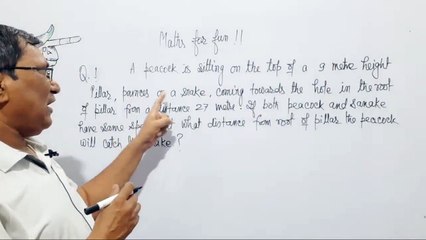 Maths for fun !!
Q.1 A peacock is sitting on the top of a 9 metre height
Pillar, pounces on a snake, coming towards the hole in the root
of pillar from a distance 27 metre. If both peacock and snake
have same what distance from root of pillar the peacock
will catch ?